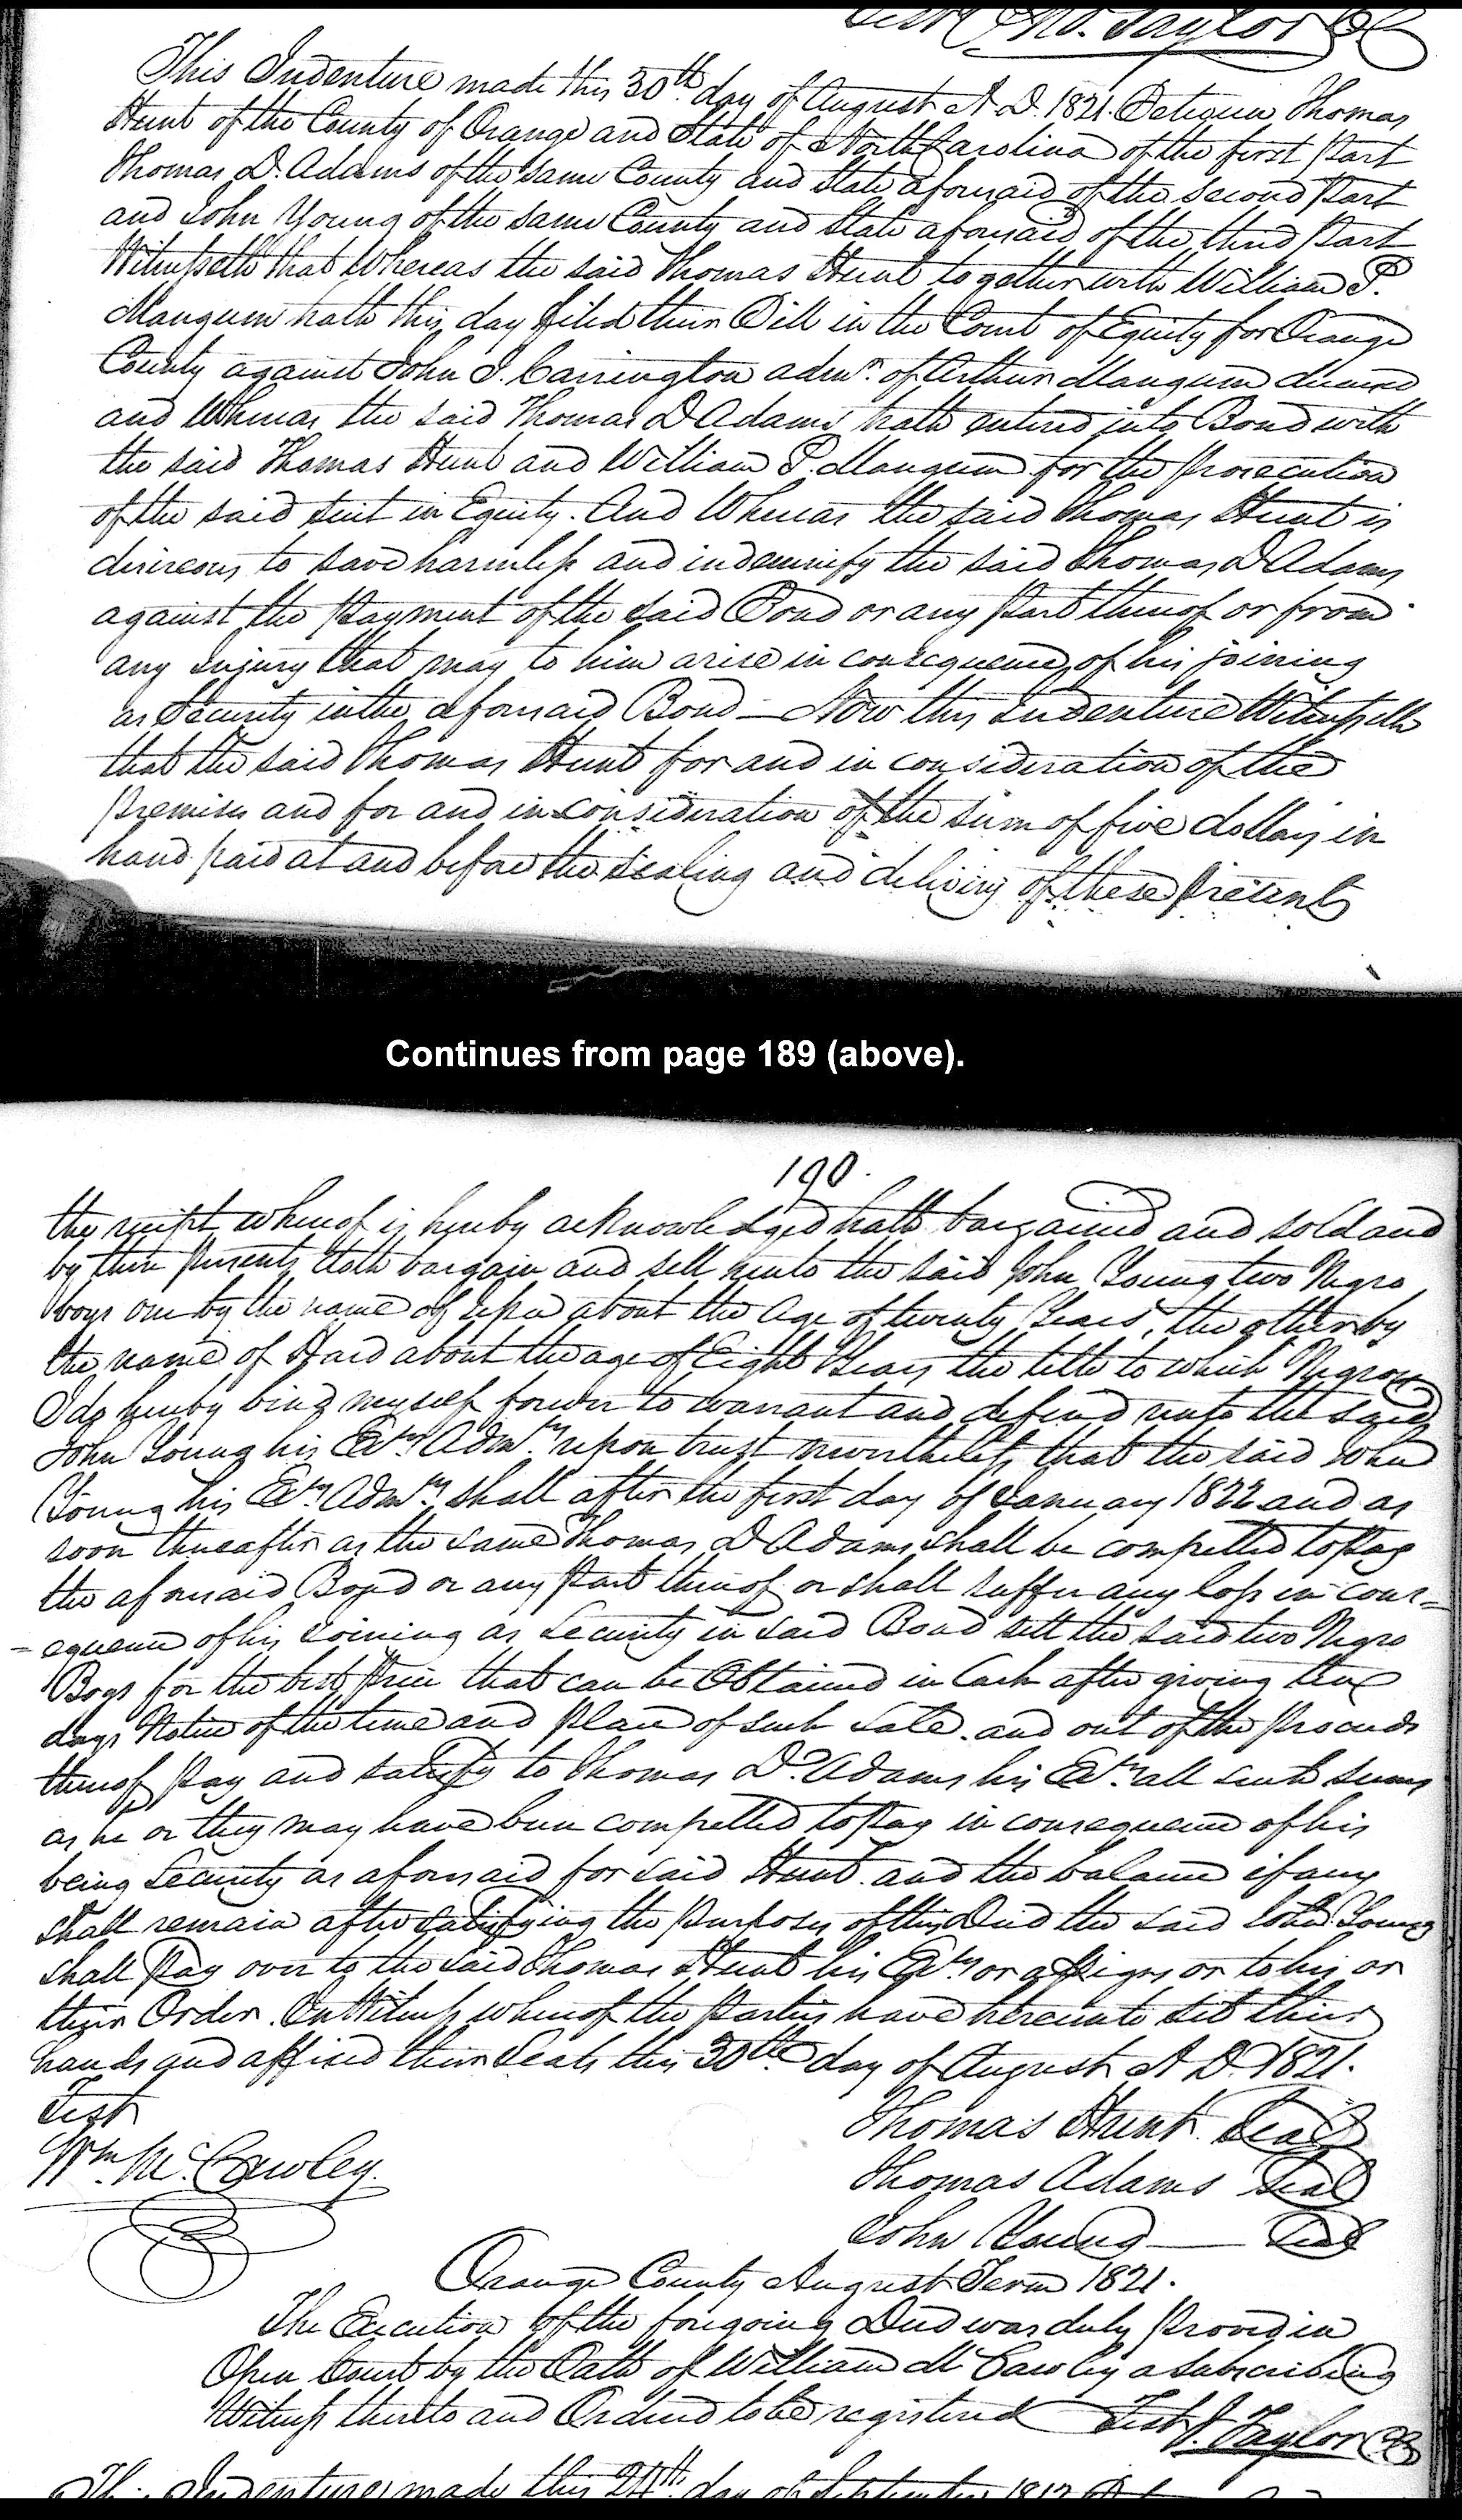 Test Jno. Taylor CC
This Indenture made this 30th day of August A D. 1821. Between Thomas
Hunt of the County of Orange and State of North Carolina of the first part
Thomas D. Adams of the same County and State aforesaid of the second part
and John Young of the same County and State aforesaid of the third part
Witnesseth that Whereas the said Thomas Hunt together with William P.
Mangum hath this day filed their Bill in the Court of Equity for Orange
County against John I. Carrington admr. of Arthur Mangum deceased
and Whereas the said Thomas D Adams hath entered into Bond with
the said Thomas Hunt and William P. Mangum for the prosecution
of the said suit in Equity. And Whereas the said Thomas Hunt is
desireous to save harmless and indemnify the said Thomas D Adams
against the payment of the said Bond or any part thereof or from
any Injury that may to him arise in consequence of his joining
as Security in the aforesaid Bond — Now this Indenture Witnesseth
that the said Thomas Hunt for and in consideration of the
premises and for and in consideration of the sum of five dollars in
hand paid at and before the sealing and delivery of these presents
Continues from page 189 (above).
190.
the receipt whereof is hereby acknowledged hath bargained and sold and
by these presents doth bargain and sell unto the said John Young two Negro
boys one by the name of about the age of twenty Years, the other by
the name of about the age of Eight Years the title to which Negroes
I do hereby bind myself forever to warrant and defend unto the said
John Young his Exrs Admrs upon trust nevertheless that the said John
Young his Exrs Admrs shall after the first day of January 1822 and as
soon thereafter as the same Thomas D Adams shall be compelled to pay
the aforesaid Bond or any part thereof or shall suffer any loss in cons=
=equence of his joining as Security in said Bond sell the said two Negro
Boys for the best price that can be Obtained in Cash after giving ten
days Notice of the time and place of such sale. and out of the proceeds
thereof pay and satisfy to Thomas D. Adams his Exrs all such sums
as he or they may have been compelled to pay in consequence of his
being Security as aforesaid for said Hunt. and the balance if any
shall remain after satisfying the purposes of this Deed the said John Young
shall pay over to the said Thomas Hunt his Exrs or assigns or to his or
their Order. In Witness whereof the parties have hereunto set their
hands and affixed their Seals this 30th day of August A D. 1821.
Test
Wm. McCawley.
Thomas Hunt. Seal
Thomas Adams Seal
John Young — Seal
Orange County August Term 1821.
The Execution of the foregoing Deed was duly proved in
Open Court by the Oath of William McCawley a subscribing
Witness thereto and Ordered to be registered Test J. Taylor CC
This Indenture made this 24th day of September 1812